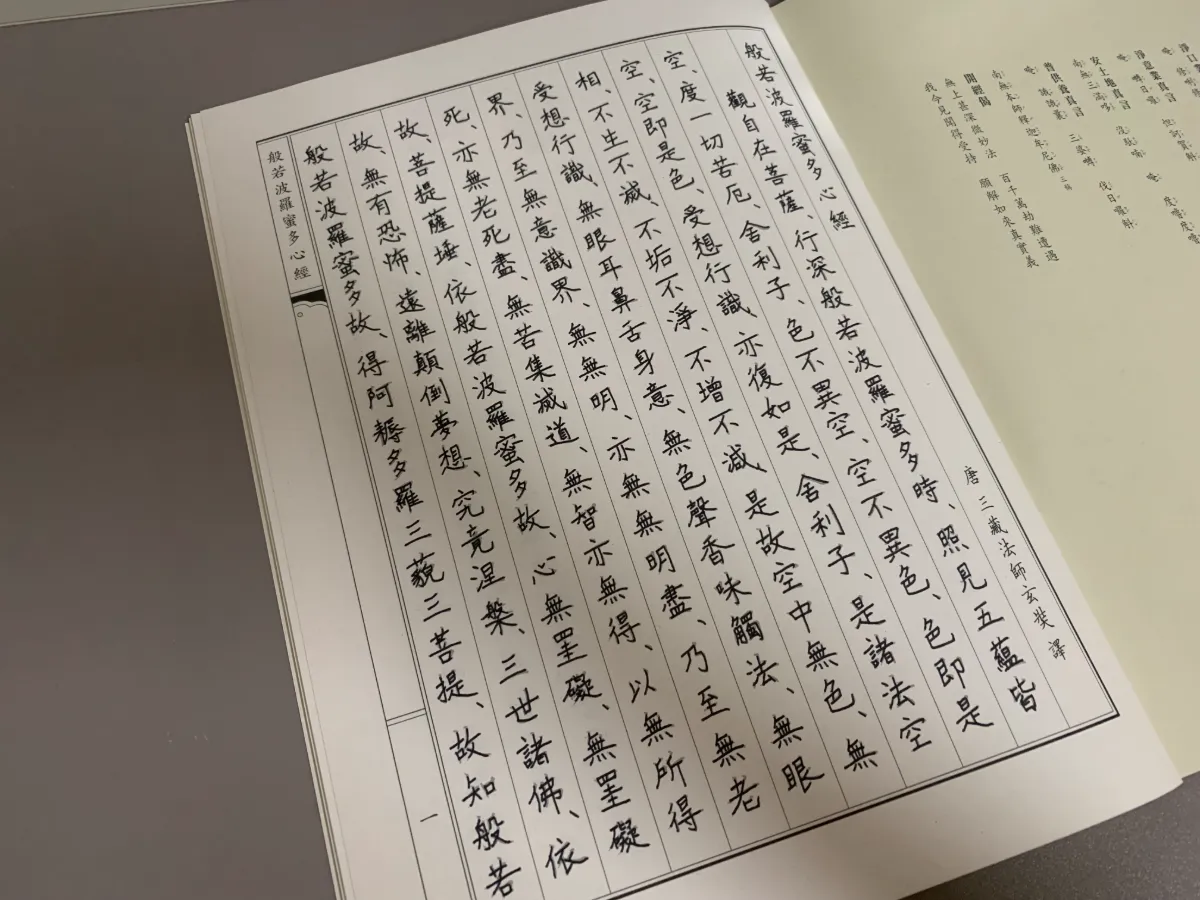 淨意業真言
安土地真言
普供養真言
南無本師釋迦牟尼佛
開經偈
無上甚深微妙法 百千萬劫難遭遇
我今見聞得受持 願解如來真實義
般若波羅蜜多心經
唐三藏法師玄奘譯
觀自在菩薩、行深般若波羅蜜多時、照見五蘊皆
空、度一切苦厄、舍利子、色不異空、空不異色、色即是
空、空即是色、受想行識、亦復如是、舍利子、是諸法空
相、不生不滅、不垢不淨、不增不減、是故空中無色、無
受想行識、無眼耳鼻舌身意、無色聲香味觸法、無眼
界、乃至無意識界、無無明、亦無無明盡、乃至無老
死、亦無老死盡、無苦集滅道、無智亦無得、以無所得
故、菩提薩埵、依般若波羅蜜多故、心無罣礙、無罣礙
故、無有恐怖、遠離顛倒夢想、究竟涅槃、三世諸佛、依
般若波羅蜜多故、得阿耨多羅三藐三菩提、故知般若
般若波羅蜜多心經
一